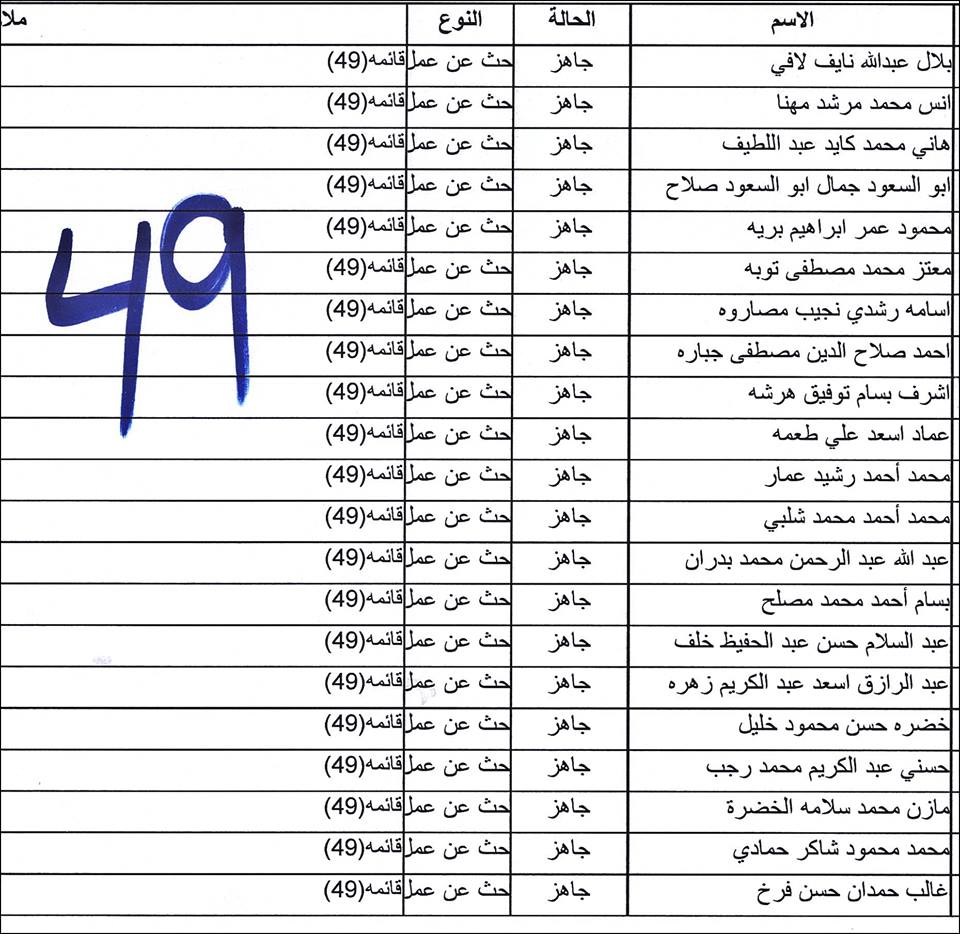 الاسم الحالة النوع ملا
بلال عبدالله نايف لافي جاهز حث عن عمل قائمه(49)
انس محمد مرشد مهنا جاهز حث عن عمل قائمه(49)
هاني محمد كايد عبد اللطيف جاهز حث عن عمل قائمه(49)
ابو السعود جمال ابو السعود صلاح جاهز حث عن عمل قائمه(49)
محمود عمر ابراهيم بريه جاهز حث عن عمل قائمه(49)
معتز محمد مصطفى توبه جاهز حث عن عمل قائمه(49)
اسامه رشدي نجيب مصاروه جاهز حث عن عمل قائمه(49)
احمد صلاح الدين مصطفى جباره جاهز حث عن عمل قائمه(49)
اشرف بسام توفيق هرشه جاهز حث عن عمل قائمه(49)
عماد اسعد علي طعمه جاهز حث عن عمل قائمه(49)
محمد أحمد رشيد عمار جاهز حث عن عمل قائمه(49)
محمد أحمد محمد شلبي جاهز حث عن عمل قائمه(49)
عبد الله عبد الرحمن محمد بدران جاهز حث عن عمل قائمه(49)
بسام أحمد محمد مصلح جاهز حث عن عمل قائمه(49)
عبد السلام حسن عبد الحفيظ خلف جاهز حث عن عمل قائمه(49)
عبد الرازق اسعد عبد الكريم زهره جاهز حث عن عمل قائمه(49)
خضره حسن محمود خليل جاهز حث عن عمل قائمه(49)
حسني عبد الكريم محمد رجب جاهز حث عن عمل قائمه(49)
مازن محمد سلامه الخضرة جاهز حث عن عمل قائمه(49)
محمد محمود شاكر حمادي جاهز حث عن عمل قائمه(49)
غالب حمدان حسن فرخ جاهز حث عن عمل قائمه(49)
49